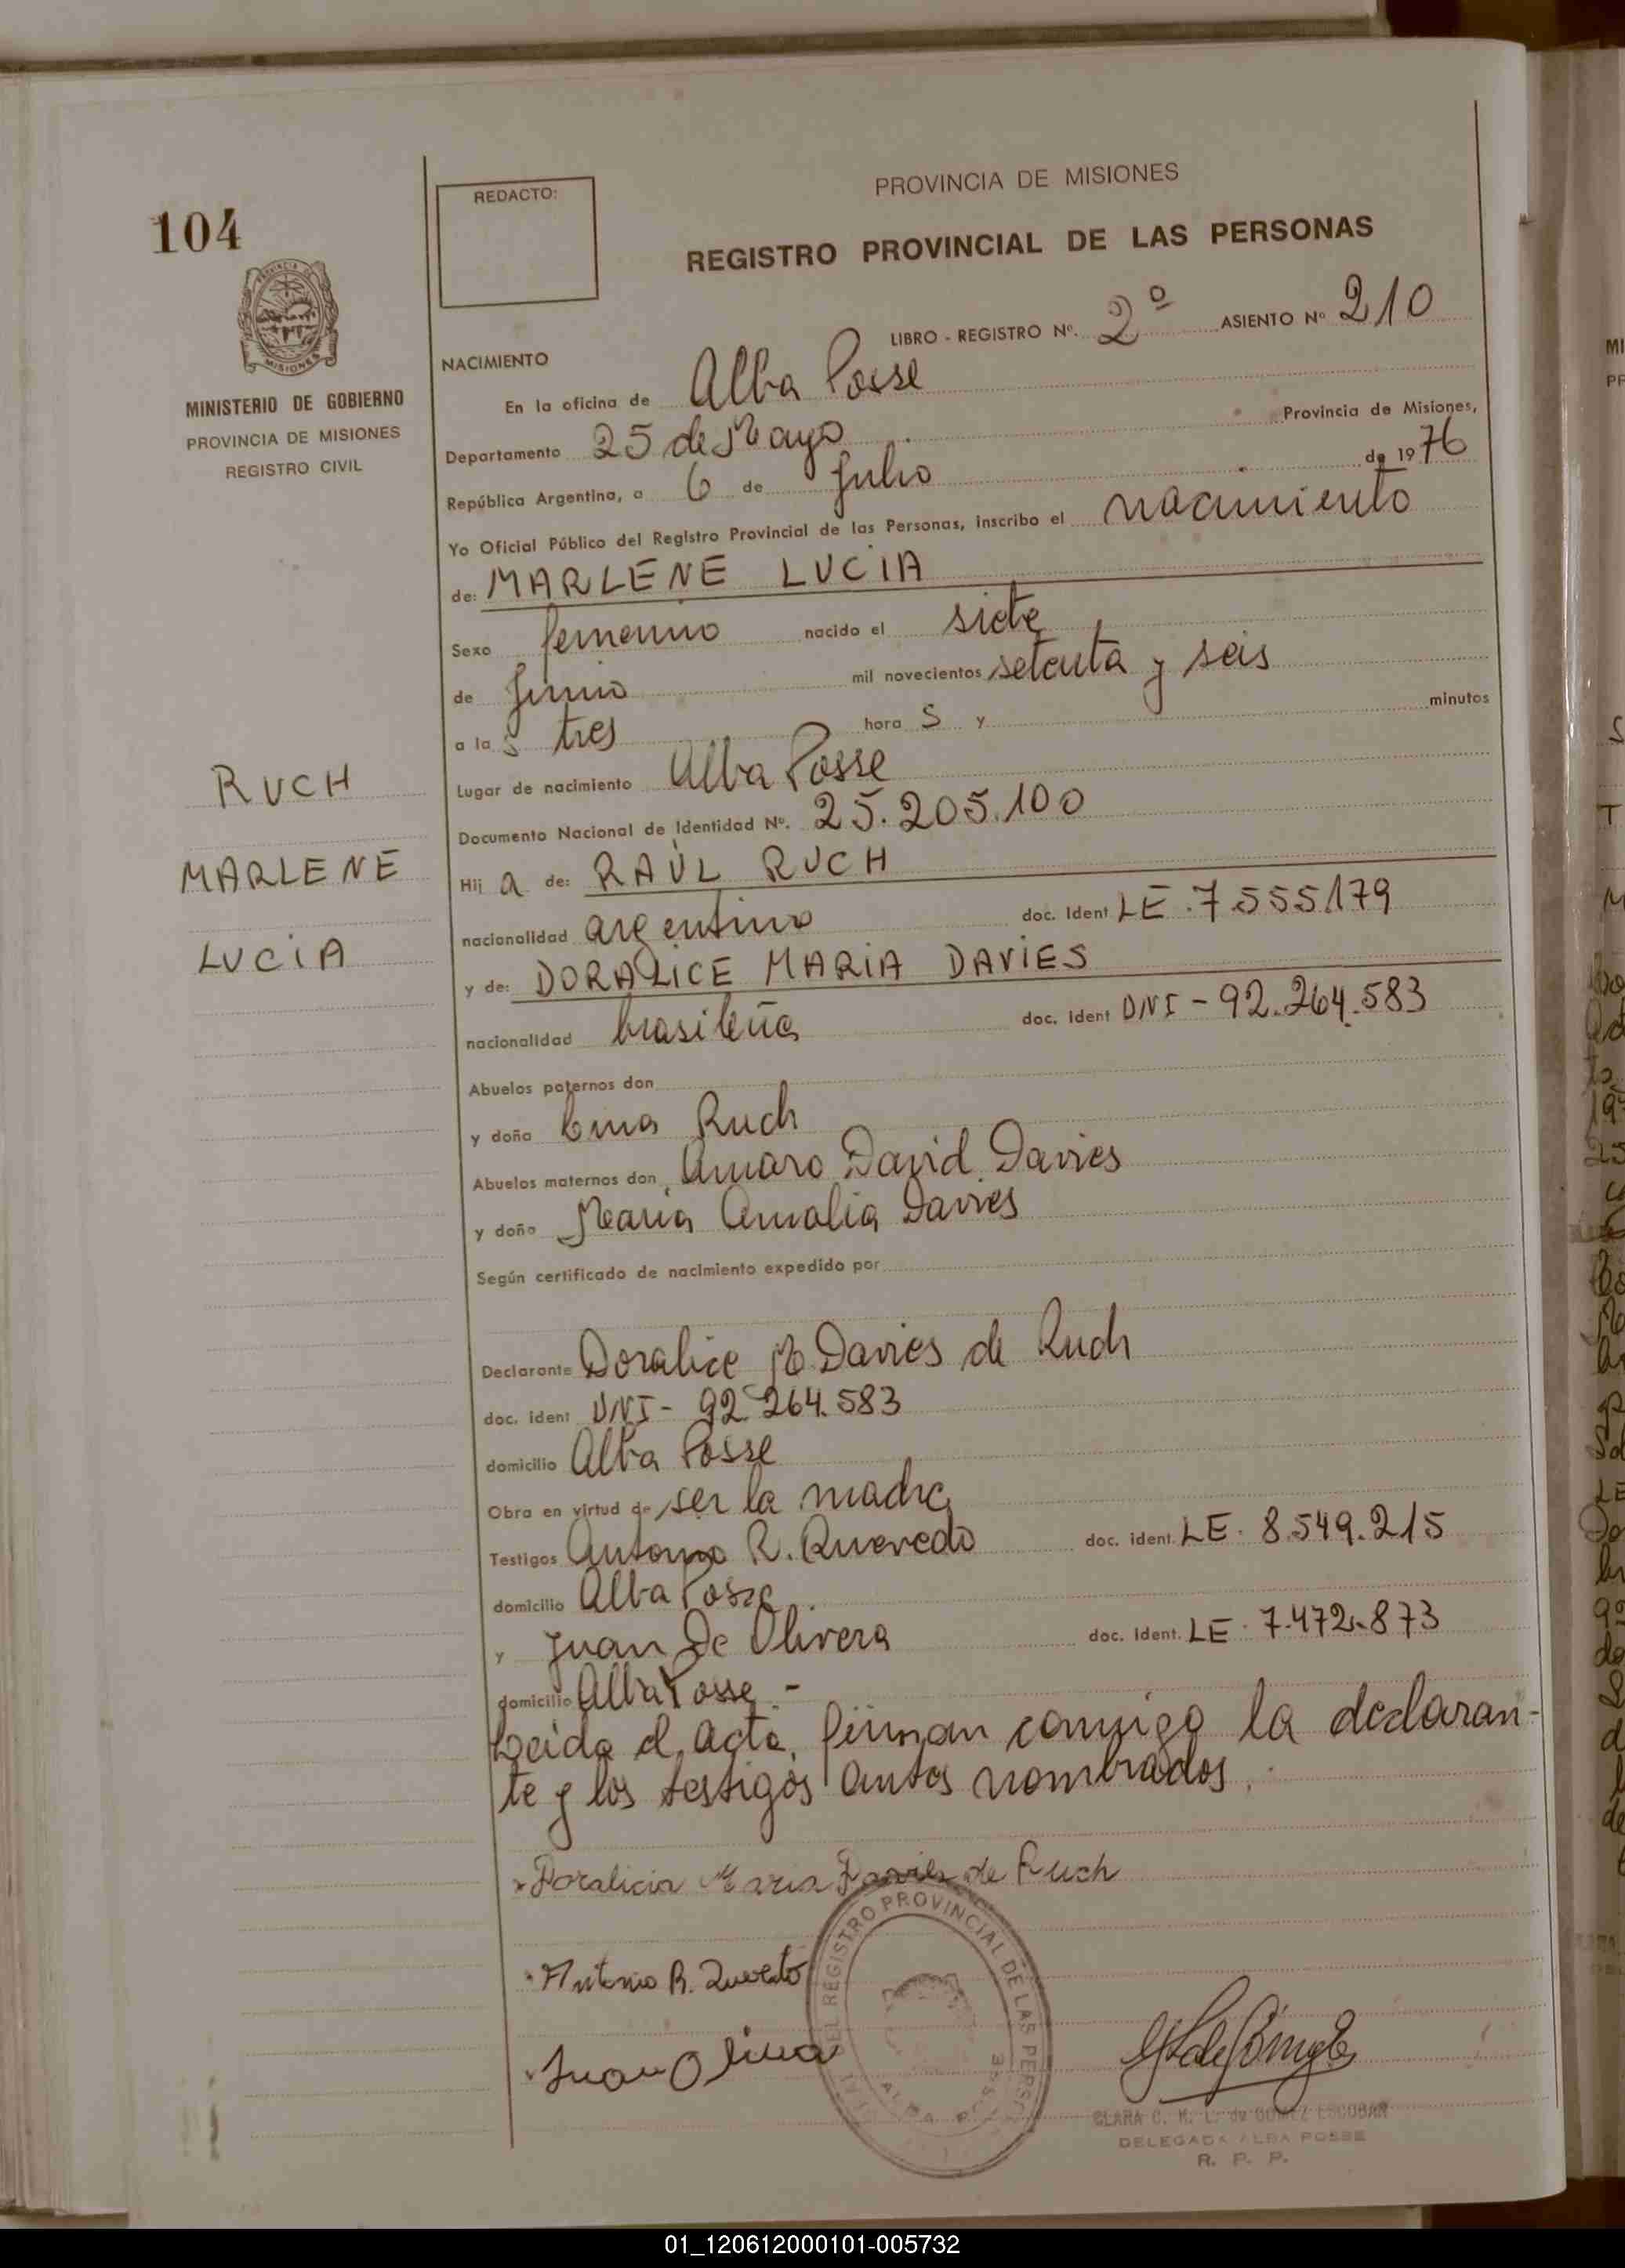 104
PROVINCIA DE MISIONES
MINISTERIO DE GOBIERNO
PROVINCIA DE MISIONES
REGISTRO CIVIL
RUCH
MARLENE
LUCIA
REDACTO:
PROVINCIA DE MISIONES
REGISTRO PROVINCIAL DE LAS PERSONAS
LIBRO - REGISTRO Nº. 2º ASIENTO Nº 210
NACIMIENTO
En la oficina de Alba Posse
Departamento 25 de Mayo Provincia de Misiones,
República Argentina, a 6 de Julio de 1976
Yo Oficial Público del Registro Provincial de las Personas, inscribo el nacimiento
de: MARLENE LUCIA
Sexo femenino nacido el siete
de Junio mil novecientos setenta y seis
a las tres horas y minutos
Lugar de nacimiento Alba Posse
Documento Nacional de Identidad Nº. 25.205.100
Hija de: RAÚL RUCH
nacionalidad argentino doc. Ident LE. 7.555.179
y de: DORALICE MARIA DAVIES
nacionalidad brasileña doc. ident DNI - 92.264.583
Abuelos paternos don
y doña Ruch
Abuelos maternos don Amaro David Davies
y doña Maria Amalia Davies
Según certificado de nacimiento expedido por
Declarante Doralice M. Davies de Ruch
doc. ident DNI - 92.264.583
domicilio Alba Posse
Obra en virtud de ser la madre
Testigos Antonio R. Quevedo doc. ident. LE. 8.549.215
domicilio Alba Posse
y Juan De Olivera doc. Ident. LE. 7.472.873
domicilio Alba Posse -
Leida el acta, firman conmigo la declaran-
te y los testigos antes nombrados.
Doralicia Maria Davies de Ruch
Antonio R. Quevedo
Juan Olivera
DEL REGISTRO PROVINCIAL DE LAS PERSO
ALBA POSSE
CLARA C. M. L. de GOMEZ ESCOBAR
DELEGADA ALBA POSSE
R. P. P.
01_120612000101-005732